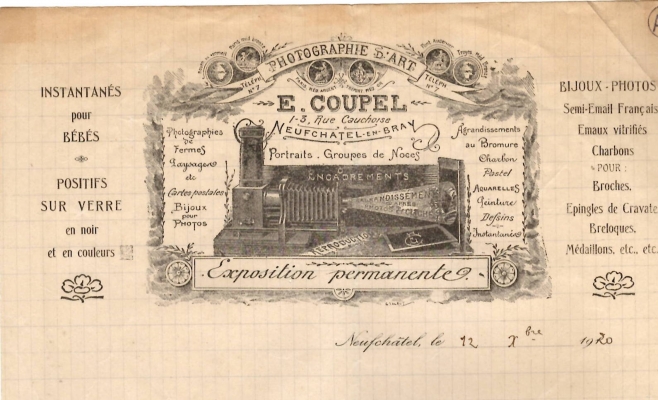 INSTANTANÉS
pour
BÉBÉS
POSITIFS
SUR VERRE
en noir
et en couleurs
PHOTOGRAPHIE D'ART
TÉLÉPH
Nº 7
TÉLÉPH
E. COUPEL
1-3, Rue Cauchoise
NEUFCHATEL-EN-BRAY
Portraits. Groupes de Noces
ENCADREMENTS
Photographies
de
Fermes
Paysages
etc
Cartes postales
Bijoux
pour
PHOTOS
Agrandissements
au Bromure
Charbon
Pastel
AQUARELLES
Peinture
Dessins
Instantanés
Exposition permanente.
BIJOUX-PHOTOS
Semi-Email Français
Emaux vitrifiés
Charbons
POUR :
Broches.
Epingles de Cravate
Breloques.
Médaillons. etc., etc.
Neufchâtel, le 12 Xbre 1920